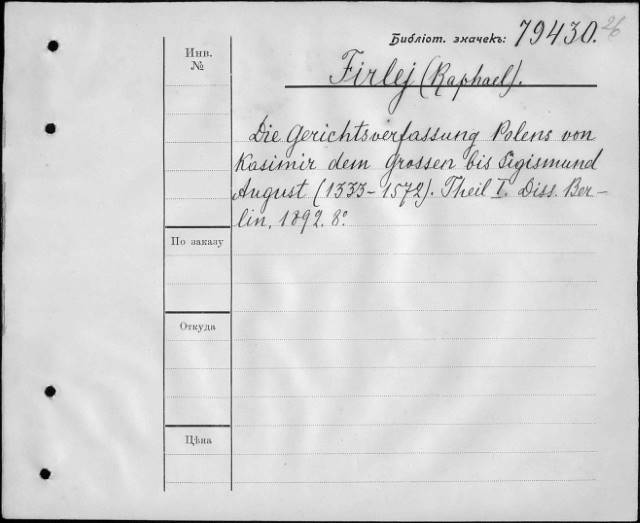 Библіот. значекъ: 79430. 26
Инв.
№
Firlej (Raphael).
Die Gerichtsverfassung Polens von
Kasimir dem Grossen bis Sigismund
August (1333-1572). Theil I. Diss. Ber-
lin, 1892. 8°.
По заказу
Откуда
Цѣна